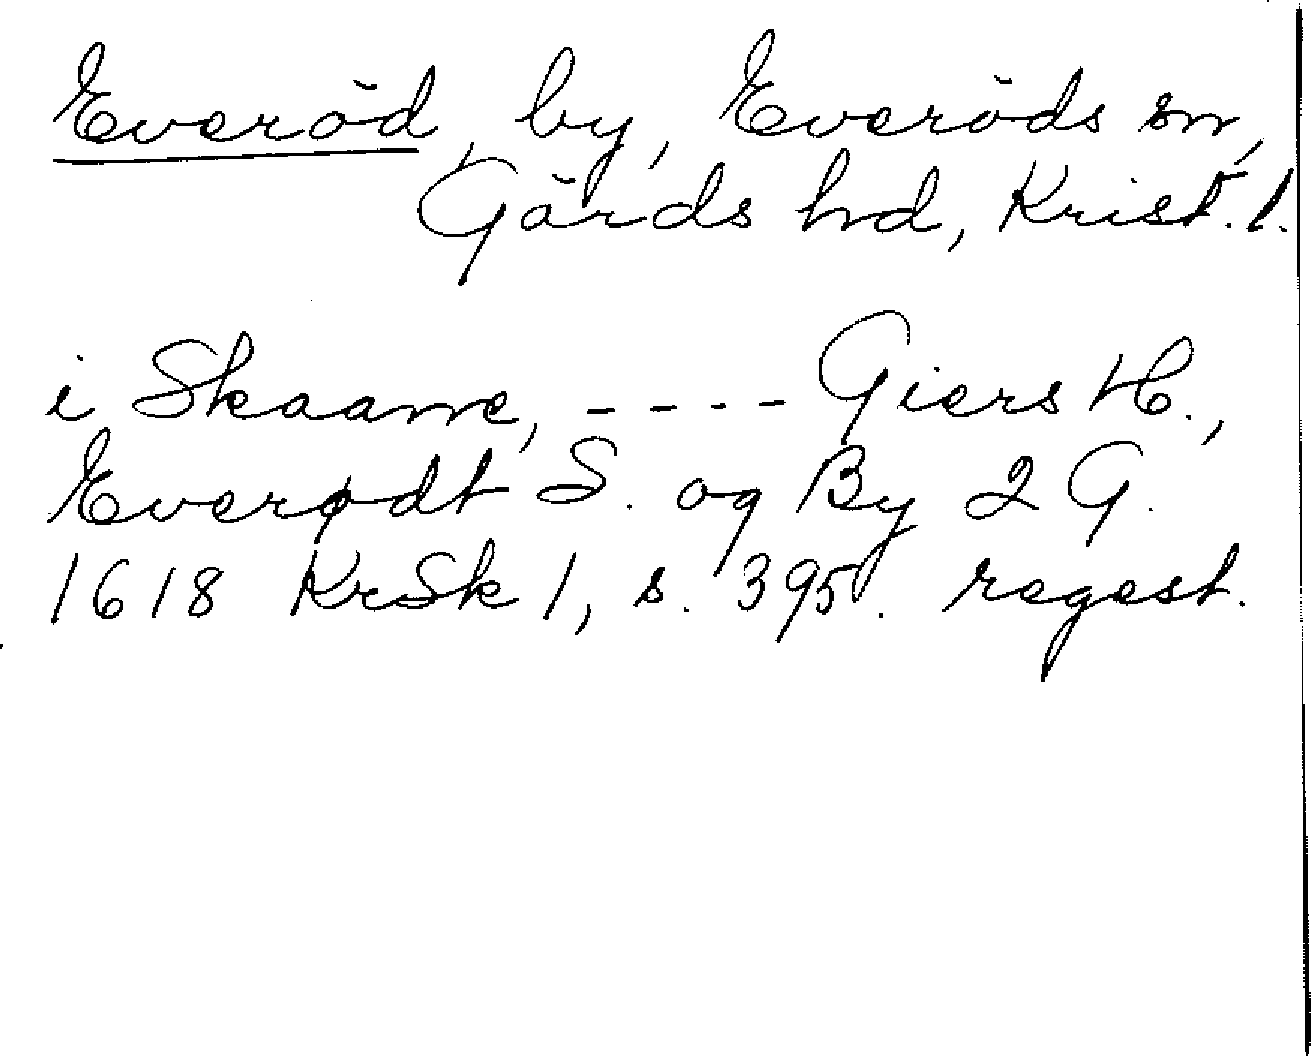 Everöd, by, Everöds sn,
Gärds hd, Krist. l.
i Skaane, - - - - Giers H.,
Everødt S. og By 2 G.
1618 KrSk 1, s. 395. regest.